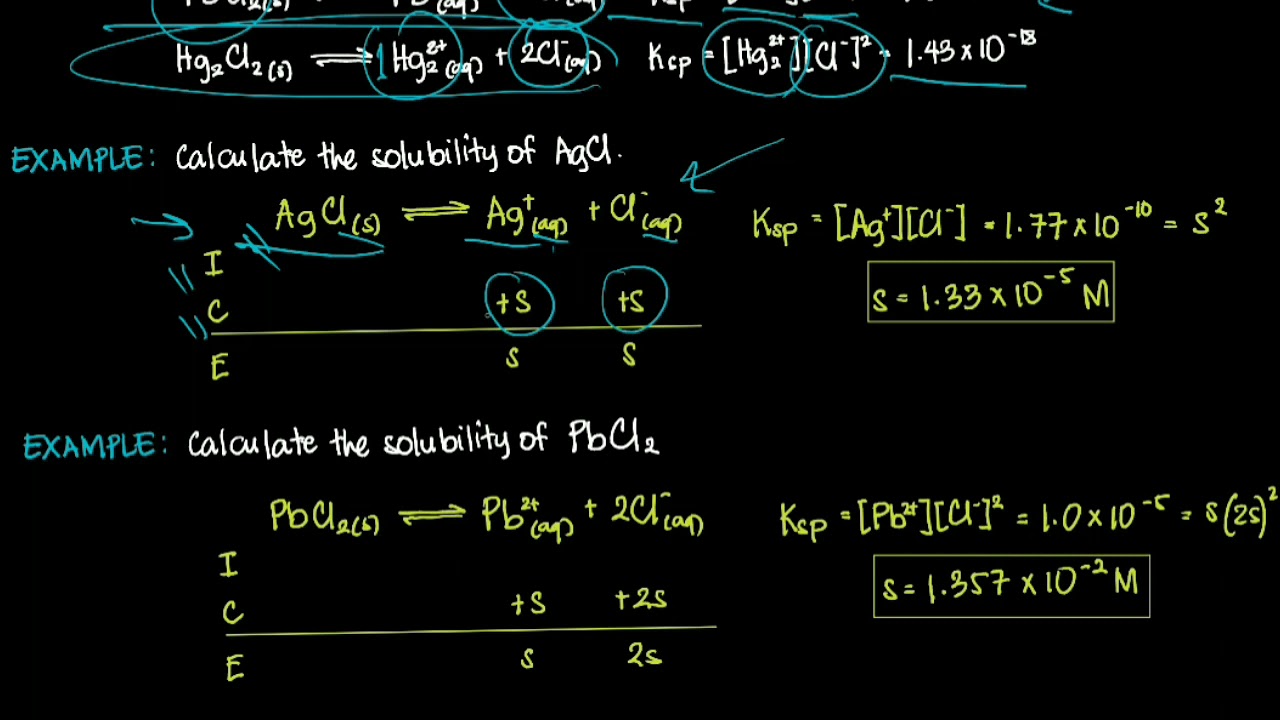 Hg₂Cl₂(s) ⇌ 1 Hg₂²⁺(aq) + 2Cl⁻(aq) Ksp = [Hg₂²⁺][Cl⁻]² = 1.43 × 10⁻¹⁸
EXAMPLE: Calculate the solubility of AgCl.
AgCl(s) ⇌ Ag⁺(aq) + Cl⁻(aq) Ksp = [Ag⁺][Cl⁻] = 1.77 × 10⁻¹⁰ = s²
I
C +s +s s = 1.33 × 10⁻⁵ M
E s s
EXAMPLE: Calculate the solubility of PbCl₂
PbCl₂(s) ⇌ Pb²⁺(aq) + 2Cl⁻(aq) Ksp = [Pb²⁺][Cl⁻]² = 1.0 × 10⁻⁵ = s(2s)²
I
C +s +2s s = 1.357 × 10⁻² M
E s 2s